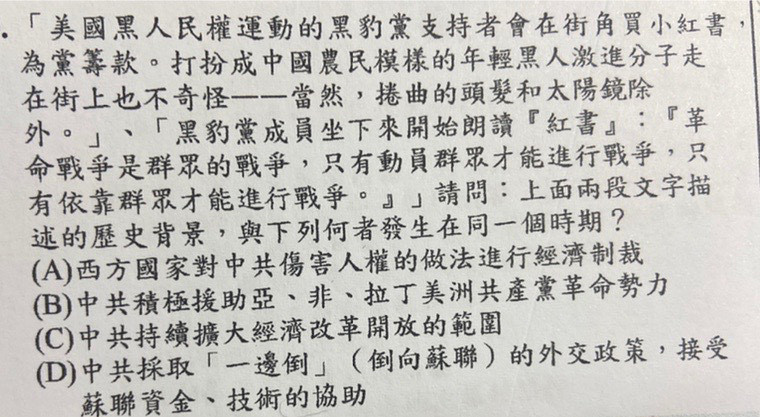 .「美國黑人民權運動的黑豹黨支持者會在街角買小紅書,
為黨籌款。打扮成中國農民模樣的年輕黑人激進分子走
在街上也不奇怪——當然,捲曲的頭髮和太陽鏡除
外。」、「黑豹黨成員坐下來開始朗讀『紅書』:『革
命戰爭是群眾的戰爭,只有動員群眾才能進行戰爭,只
有依靠群眾才能進行戰爭。』」請問:上面兩段文字描
述的歷史背景,與下列何者發生在同一個時期?
(A)西方國家對中共傷害人權的做法進行經濟制裁
(B)中共積極援助亞、非、拉丁美洲共產黨革命勢力
(C)中共持續擴大經濟改革開放的範圍
(D)中共採取「一邊倒」(倒向蘇聯)的外交政策,接受
蘇聯資金、技術的協助